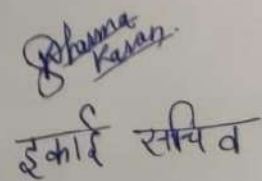 Dharma
Karan.
इकाई सचिव